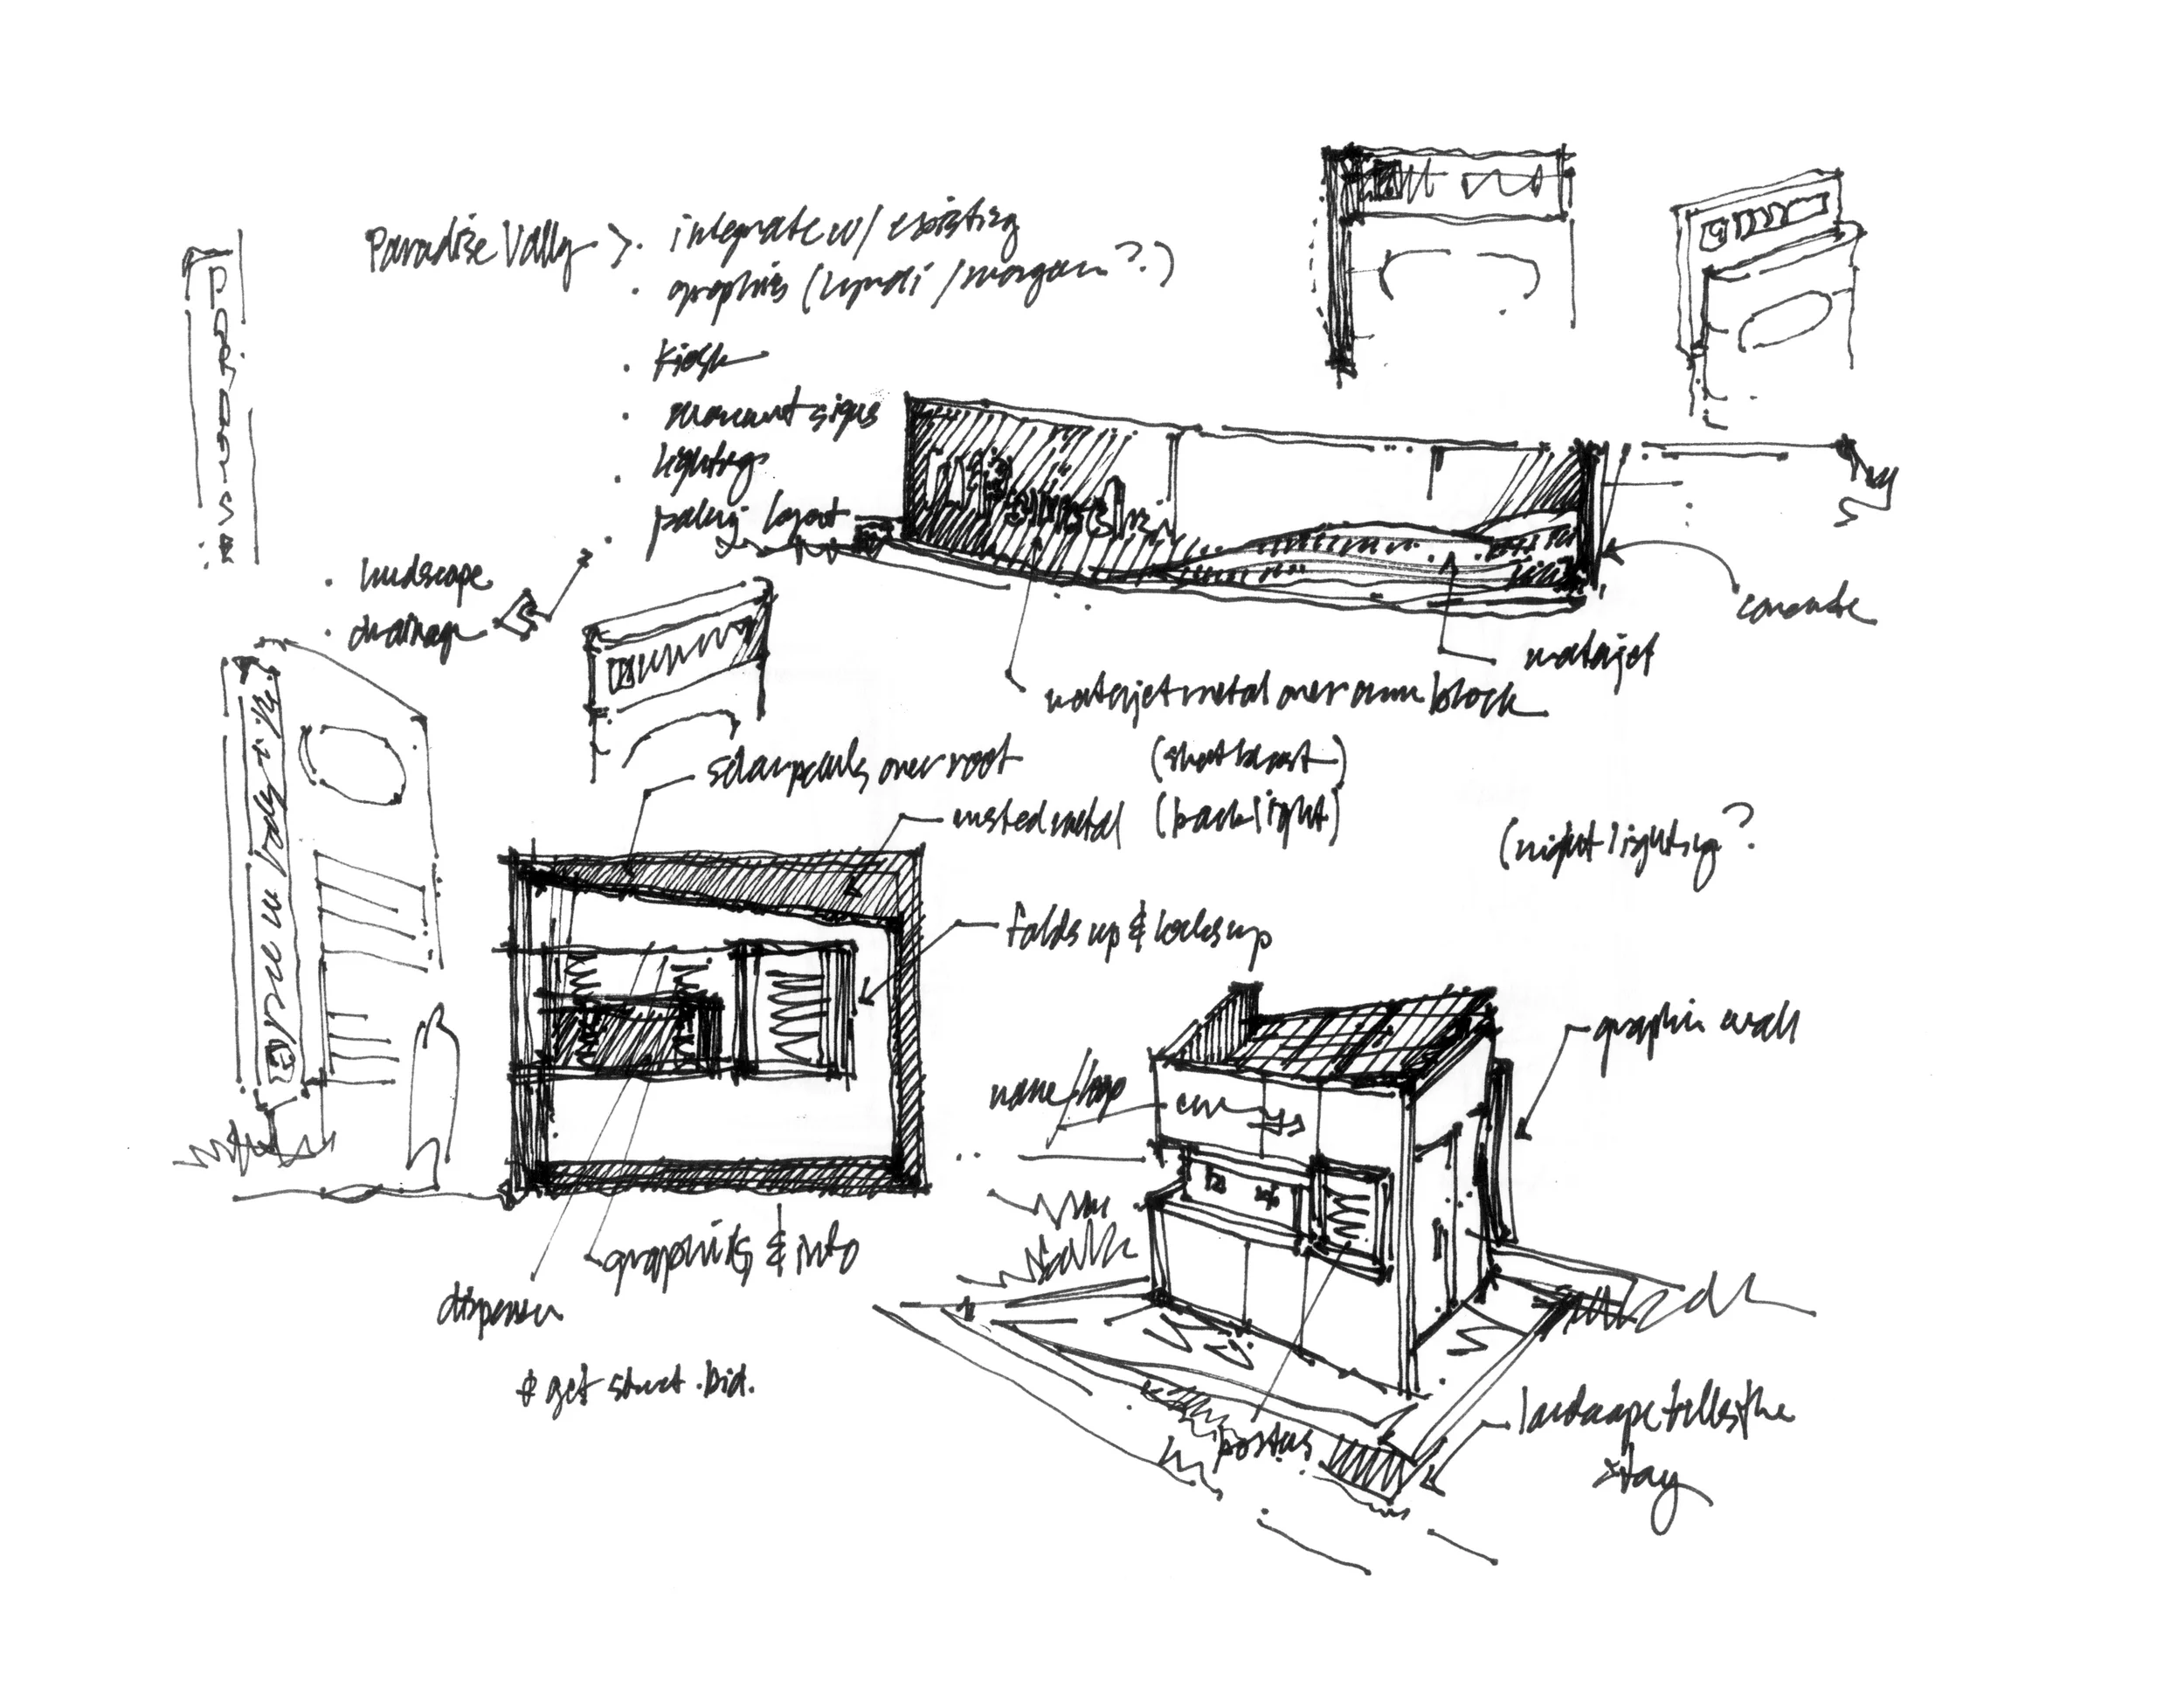 Paradise Vally > · integrate w/ existing
· graphis (lyndi / morgan ??)
· Kiosk
· monumt signs
· lighting
· layout
· landscape
· drainage
concrete
waterjet
waterjet metal over cmu block
(shotblast)
(backlight)
(night lighting?
solar panels over roof
rusted metal
folds up & locks up
graphic wall
name/logo
graphics & info
dispenser
* get struct. bid.
posters
landscape tells the
story